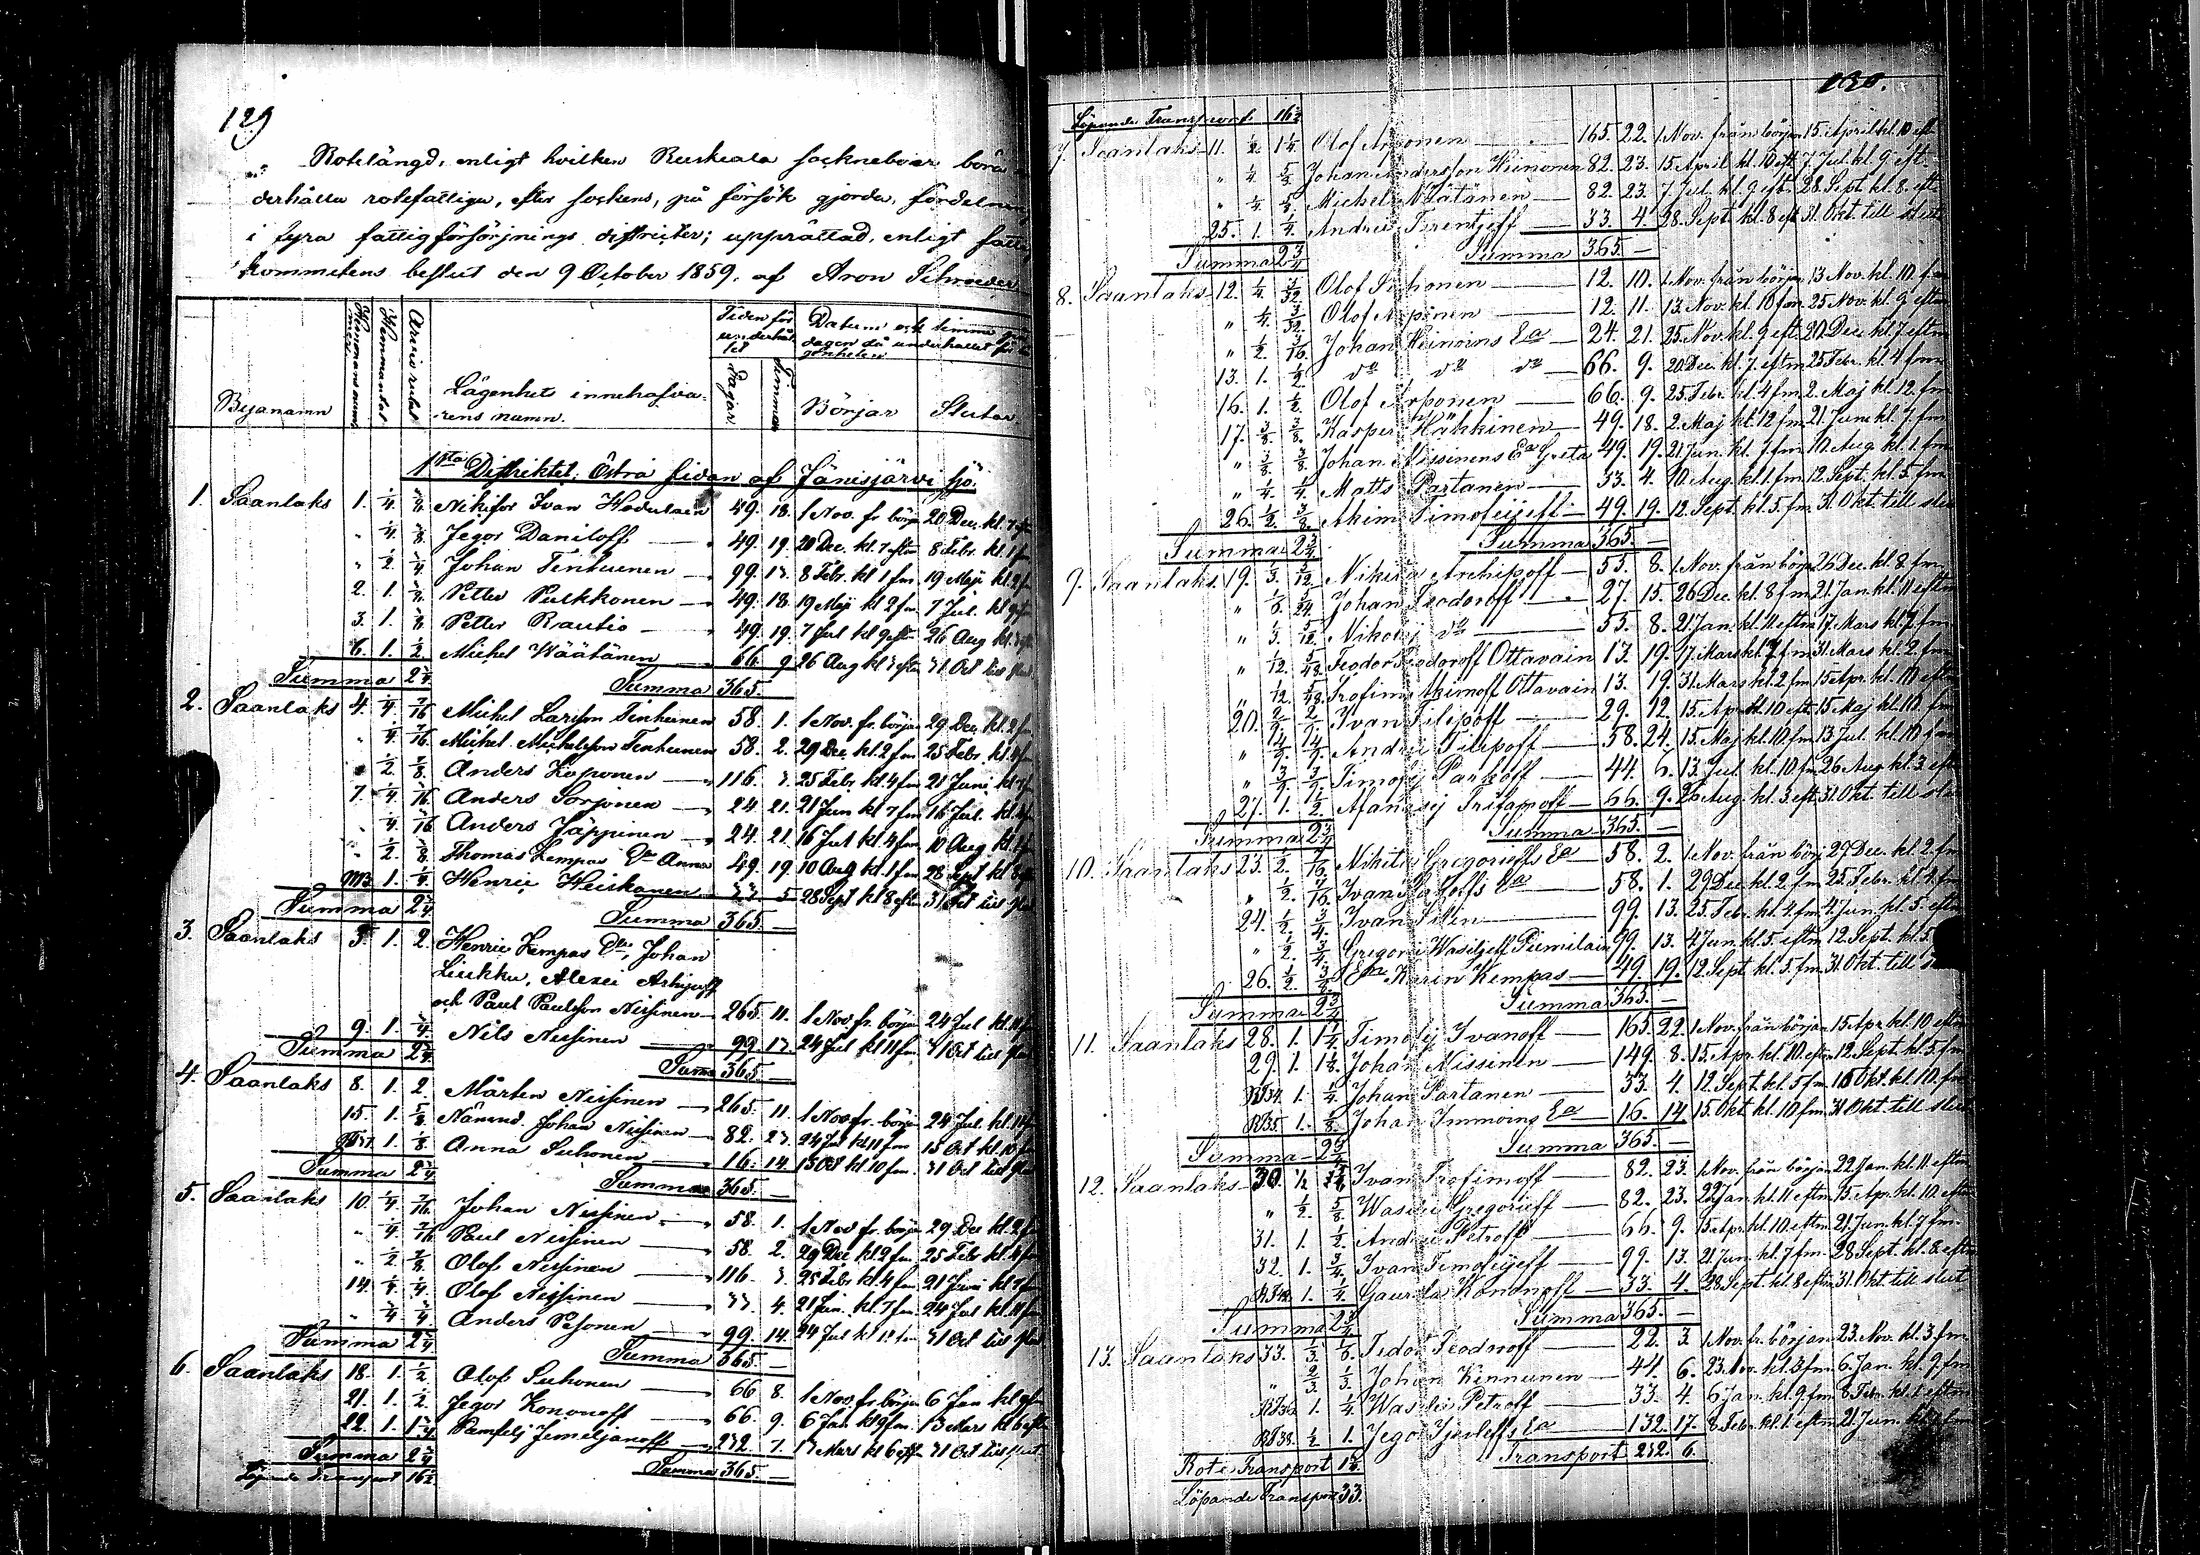 129
Rotelängd, enligt hvilken Ruskeala sockneboer böra
derhålla rotefattiga, efter sockens, på försök gjorda, fördelning
i fyra fattigförsörjnings districter; upprättad, enligt
kommitens beslut den 9 October 1859, af Aron Schroeder
Byanamn Hemmans nummer Hemmantal Arvio rubel Lägenhets innehafva-rens namn. Tiden för underhållet Dagar Timmar Datum och timme dagen då underhållet Börjar Slutar
1sta Distriktet; Östra sidan af Jänisjärvi sjö.
1. Saanlaks 1. 1/4 3/8 Nikifor Ivan 49. 18. 1 Nov. fr börja 20 Dec. kl. 7
" 1/4 3/8 Jegor Daniloff 49. 19. 20 Dec. kl. 7 eftm 8 Febr. kl. 1 fm
" 1/2 3/4 Johan Tenhunen 99. 13. 8 Febr. kl 1 fm. 19 Maji kl. 2 fm
2. 1. 3/8 Petter Pulkkonen 49. 18. 19 Maji kl 2 fm. 7 Jul. kl 9
3. 1. 3/8 Petter Rautio 49. 19. 7 Jul kl 9 eftm 26 Aug kl. 3
6. 1. 1/2 Michel Wäätänen 66. 9. 26 Aug kl 3 eftm 31 Oct till slut
Summa 2 3/4 Summa 365.
2. Saanlaks 4. 1/4 7/16 Michel Larsson Tenhunen 58. 1. 1 Nov. fr. börjn 29 Dec. kl. 2 fm
" 1/4 7/16 Michel Michelsson Tenhunen 58. 2. 29 Dec. kl. 2 fm 25 Febr. kl. 4 fm
" 1/2 7/8 Anders Koponen 116. 3. 25 Febr. kl. 4 fm 21 Juni kl. 7
7. 1/4 3/16 Anders Sorjonen 24 21. 21 Jun kl 7 fm 16 Jul. kl. 4
" 1/4 3/16 Anders Jäppinen 24. 21. 16 Jul kl. 4 fm 10 Aug kl. 1
" 1/2 3/8 Thomas Kempas Dr Anna 49. 19 10 Aug kl. 1 fm 28 Sept kl 8
1. 1/4 Henric Heiskanen 33 5 28 Sept kl 8 eftm 31 Oct till slut
Summa 2 3/4 Summa 365. —
3. Saanlaks 5. 1. 2. Henric Kempas Johan
Liukku, Alexei Arhipoff
och Paul Paulsson Nissinen 265. 11. 1 Nov. fr. börjn 24 Jul kl. 11
9. 1. 3/4 Nils Nissinen 99. 13. 24 Jul kl 11 fm. 31 Oct till slut
Summa 2 3/4 Suma 365. —
4. Saanlaks 8. 1. 2. Mårten Nissinen 265. 11. 1 Nov fr. börjn 24 Jul. kl. 11
15. 1. 5/8 Nämnd. Johan Nissinen 82. 23. 24 Jul kl 11 fm 15 Oct kl. 10 fm
1. 1/8 Anna Suhonen 16. 14. 15 Oct kl 10 fm. 31 Oct till slut
Summa 2 3/4 Summa 365. —
5. Saanlaks 10. 1/4 7/16 Johan Nissinen 58. 1. 1 Nov fr. börjn 29 Dec kl. 2
" 1/4 7/16 Paul Nissinen 58. 2. 29 Dec kl 2 fm. 25 Febr kl. 4 fm
" 1/2 7/8 Olof Nissinen 116 3. 25 Febr kl. 4 fm 21 Juni kl. 7
14. 1/4 1/4 Olof Nissinen 33. 4. 21 Jun. kl. 7 fm. 24 Jul kl. 11
" 3/4 3/4 Anders Pesonen 99. 14. 24 Jul kl 11 fm 31 Oct till slut
Summa 2 3/4 Summa 365. —
6. Saanlaks 18. 1. 1/2 Olof Suhonen 66 8. 1 Nov fr. börjn 6 Jan kl. 9 fm
21. 1. 1/2. Jegor Kononoff 66. 9. 6 Jan. kl 9 fm. 13 Mars kl 6
22. 1. 1 3/4 Pamfilj Jemeljanoff 232. 7. 13 Mars kl 6 eft 31 Oct till slut
Summa 2 3/4 Summa 365. —
Löpande Transport 16 1/2
130.
Löpande Transport. 16 1/2
7. Saanlaks 11. 1/2. 1 1/4. Olof Arponen 165. 22. 1. Nov. från börjn 15. April kl. 10 eft
" 1/4 5/8 Johan Andersson Heinonen 82. 23. 15 April kl. 10 eft. 7 Jul. kl. 9 eft.
" 1/4 5/8 Michel Wätänen 82. 23. 7 Jul. kl. 9 eft. 28. Sept kl. 8. eft.
25. 1. 1/4. Andrei Terentjeff 33. 4. 28. Sept. kl. 8 eft 31. Okt. till slut
Summa 2 3/4 Summa 365. —
8. Saanlaks 12. 1/4 3/32 Olof Suhonen 12. 10. 1. Nov. från börjn 13 Nov. kl. 10. fm
" 1/4 3/32 Olof Arponen 12. 11. 13. Nov. kl. 10 fm. 25 Nov. kl. 9 eftm
" 1/2. 3/16. Johan Heinoins Ea 24. 21. 25. Nov. kl. 9 eft. 20. Dec. kl. 7 eftm
13. 1. 1/2. do do do 66. 9. 20 Dec. kl. 7. eftm 25 Febr. kl. 4 fm
16. 1. 1/2. Olof Arponen 66. 9. 25. Febr. kl. 4 fm 2. Maj kl. 12. fm
17. 3/8 3/8. Kasper Häkkinen 49. 18. 2. Maj kl. 12 fm 21. Juni kl. 7 fm
" 3/8. 3/8. Johan Nissinens Ea Greta 49. 19. 21. Jun. kl. 7 fm 10 Aug kl. 1. fm
" 1/4. 1/4. Matts Partanen 33. 4. 10 Aug. kl. 1 fm 12. Sept. kl. 5 fm
26. 1/2. 3/8. Akim Timofeijeff 49. 19. 12. Sept kl. 5. fm 31. Okt. till slut
Summa 2 3/4 Summa 365. —
9. Saanlaks 19. 1/3. 5/12. Nikita Archipoff 55. 8. 1. Nov. från börjn 26 Dec. kl. 8 fm
" 1/6. 5/24. Johan Feodoroff 27. 15. 26 Dec. kl. 8 fm 21. Jan. kl. 11 eftm
" 1/3. 5/12. Nikolaj do 55. 8. 21. Jan. kl. 11 eftm 17 Mars kl. 7. fm
" 1/12. 5/48. Feodor Feodoroff Ottavain 13. 19. 17. Mars kl. 7 fm 31. Mars kl. 2 fm
" 1/12. 5/48. Trofim Akimoff Ottavain 13. 19. 31. Mars kl. 2 fm 15 Apr. kl. 10 eftm
20. 2/9 2/9. Ivan Filipoff 29. 12. 15. Apr. kl. 10 eft. 15 Maj kl. 10. fm
" 4/9 4/9. Andrei Filipoff 58. 24. 15. Maj kl. 10 fm 13 Jul. kl. 10 fm
" 3/9 3/9. Timofej Parkoff 44. 6. 13. Jul. kl. 10 fm 26 Aug. kl. 3. eftm
27. 1. 1/2. Afanasij Trifanoff 66. 9. 26 Aug. kl. 3 eft. 31. Okt. till slut
Summa 2 3/4 Summa 365. —
10. Saanlaks 23. 1/2. 7/16. Nikita Gregorieffs Ea 58. 2. 1. Nov. från börj 29 Dec. kl. 2. fm
" 1/2. 7/16. Ivan Ea 58. 1. 29 Dec kl. 2. fm 25. Febr. kl. 4. fm
24. 1/2. 3/4. Ivan Silin 99. 13. 25. Febr. kl. 4. fm 4. Jun. kl. 5. eftm
" 1/2. 3/4. Gregori Wasiljeff Piimilain 99. 13. 4. Jun. kl. 5. eftm 12. Sept. kl. 5
26. 1/2. 3/8. Ea Karin Kempas 49. 19. 12. Sept. kl. 5. fm. 31. Okt. till
Summa 2 3/4 Summa 365. —
11. Saanlaks 28. 1. 1 1/4. Timofej Ivanoff 165. 22. 1. Nov. från början 15. Apr. kl. 10 eftm
29. 1. 1 1/8. Johan Nissinen 149. 8. 15. Apr. kl. 10. eftm 12. Sept. kl. 5. fm
34. 1. 1/4 Johan Partanen 33. 4. 12. Sept. kl. 5 fm. 15 Okt. kl. 10. fm
35. 1. 1/8. Johan Immoins Ea 16. 14. 15. Okt. kl. 10. fm. 31. Okt. till slut
Summa 2 3/4 Summa 365. —
12. Saanlaks 30. 1/2 5/8 Ivan Trofimoff 82. 23. 1. Nov. från början 22. Jan. kl. 11. eftm
" 1/2. 5/8. Wasilei Gregorieff 82. 23. 22 Jan. kl. 11 eftm. 15. Apr. kl. 10 eftm
31. 1. 1/2. Andrei Petroff 66. 9. 15. Apr. kl. 10. eftm. 21. Jun. kl. 7. fm.
32. 1. 3/4. Ivan Timofeijeff 99. 13. 21 Jun. kl. 7 fm. 28 Sept. kl. 8. eftm
1. 1/4. Gavrila Kononoff 33. 4. 28 Sept. kl 8 eftm. 31. Okt. till slut
Summa 2 3/4 Summa 365. —
13. Saanlaks 33. 1/3. 1/6. Fedor Feodoroff 22. 3. 1. Nov. fr. början 23. Nov. kl. 3. fm.
" 2/3. 1/3. Johan Kinnunen 44. 6. 23. Nov. kl. 3 fm. 6. Jan. kl. 9 fm
1. 1/4. Wasilei Petroff 33. 4. 6 Jan. kl. 9 fm 8 Febr. kl. 1 eftm
1/2. 1. Jegor Ea 132. 17. 8. Febr. kl. 1 eftm. 21. Jun. kl. 7 fm
Rote Transport 1 3/4. Transport 232. 6.
Löpande Transport 33.